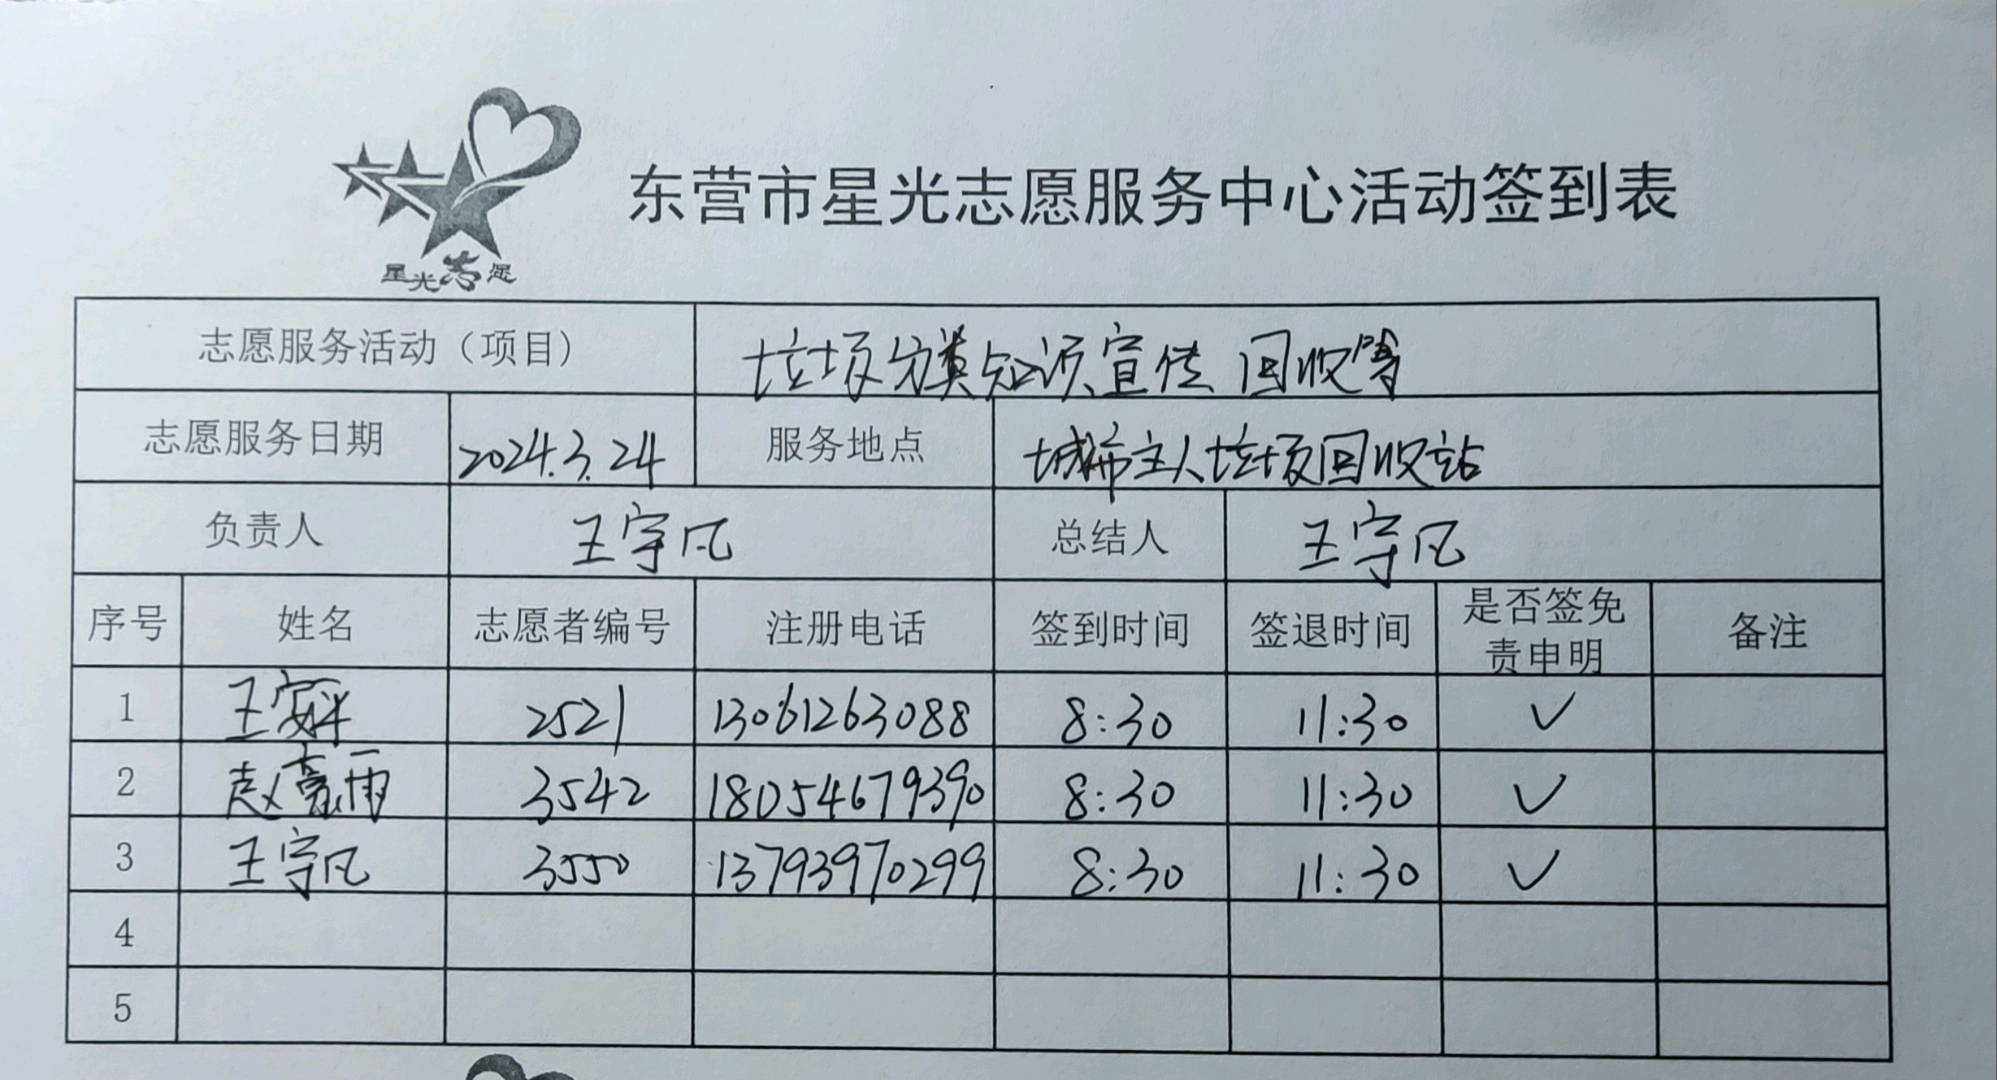 东营市星光志愿服务中心活动签到表
星光志愿
志愿服务活动（项目） 垃圾分类知识宣传 回收等
志愿服务日期 2024.3.24 服务地点 城市主人垃圾回收站
负责人 王宇凡 总结人 王宇凡
序号 姓名 志愿者编号 注册电话 签到时间 签退时间 是否签免责申明 备注
1 王 2521 13061263088 8:30 11:30 ✓
2 赵豪雨 3542 18054679390 8:30 11:30 ✓
3 王宇凡 3550 13793970299 8:30 11:30 ✓
4
5